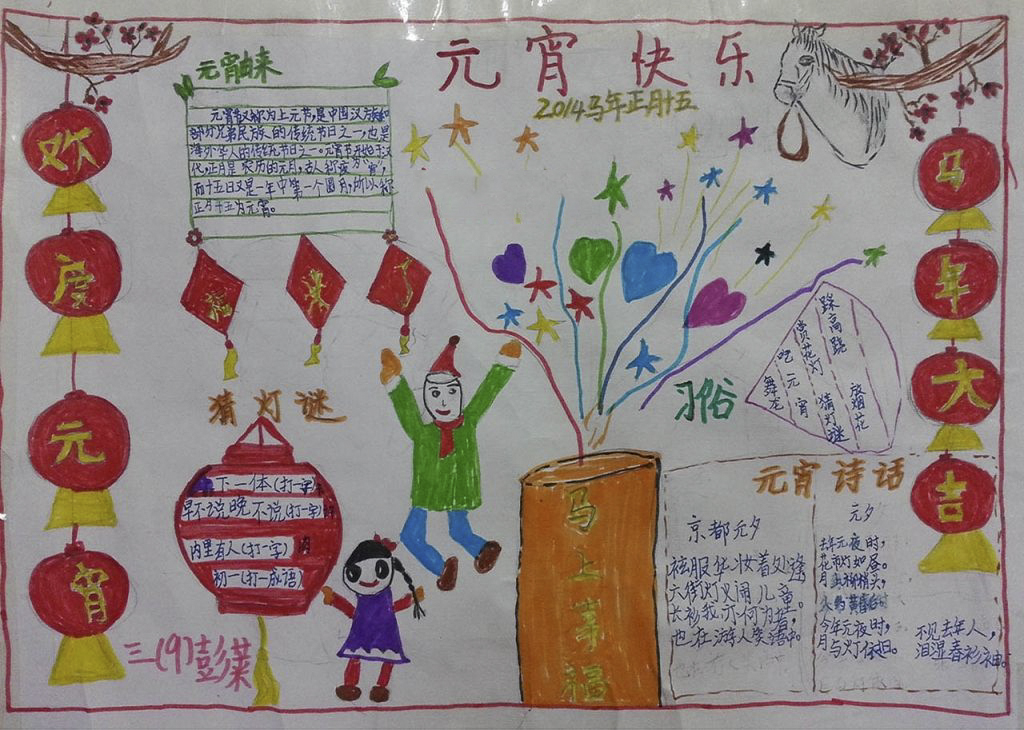 元宵快乐
2014马年正月十五
欢
度
元
宵
马
年
大
吉
元宵由来
元宵节又称为上元节,是中国汉族和
部分兄弟民族的传统节日之一,也是
海外华人的传统节日之一。元宵节形成于汉
代,正月是农历的元月,古人称夜为"宵",
而十五日又是一年中第一个圆月,所以称
正月十五为元宵。
福
来
了
猜灯谜
下一体(打一字)
早不说晚不说(打一字)
内里有人(打一字)
初一(打一成语)
三(9)彭菜
马
上
享
福
习俗
踩高跷
赏花灯
吃元宵
舞龙
猜灯谜
放烟花
元宵诗话
京都元夕
袨服华妆着处逢
六街灯火闹儿童。
长衫我亦何为者,
也在游人笑语中。
元夕
去年元夜时,
花市灯如昼。
月上柳梢头,
人约黄昏后。
今年元夜时,
月与灯依旧。
不见去年人,
泪湿春衫袖。